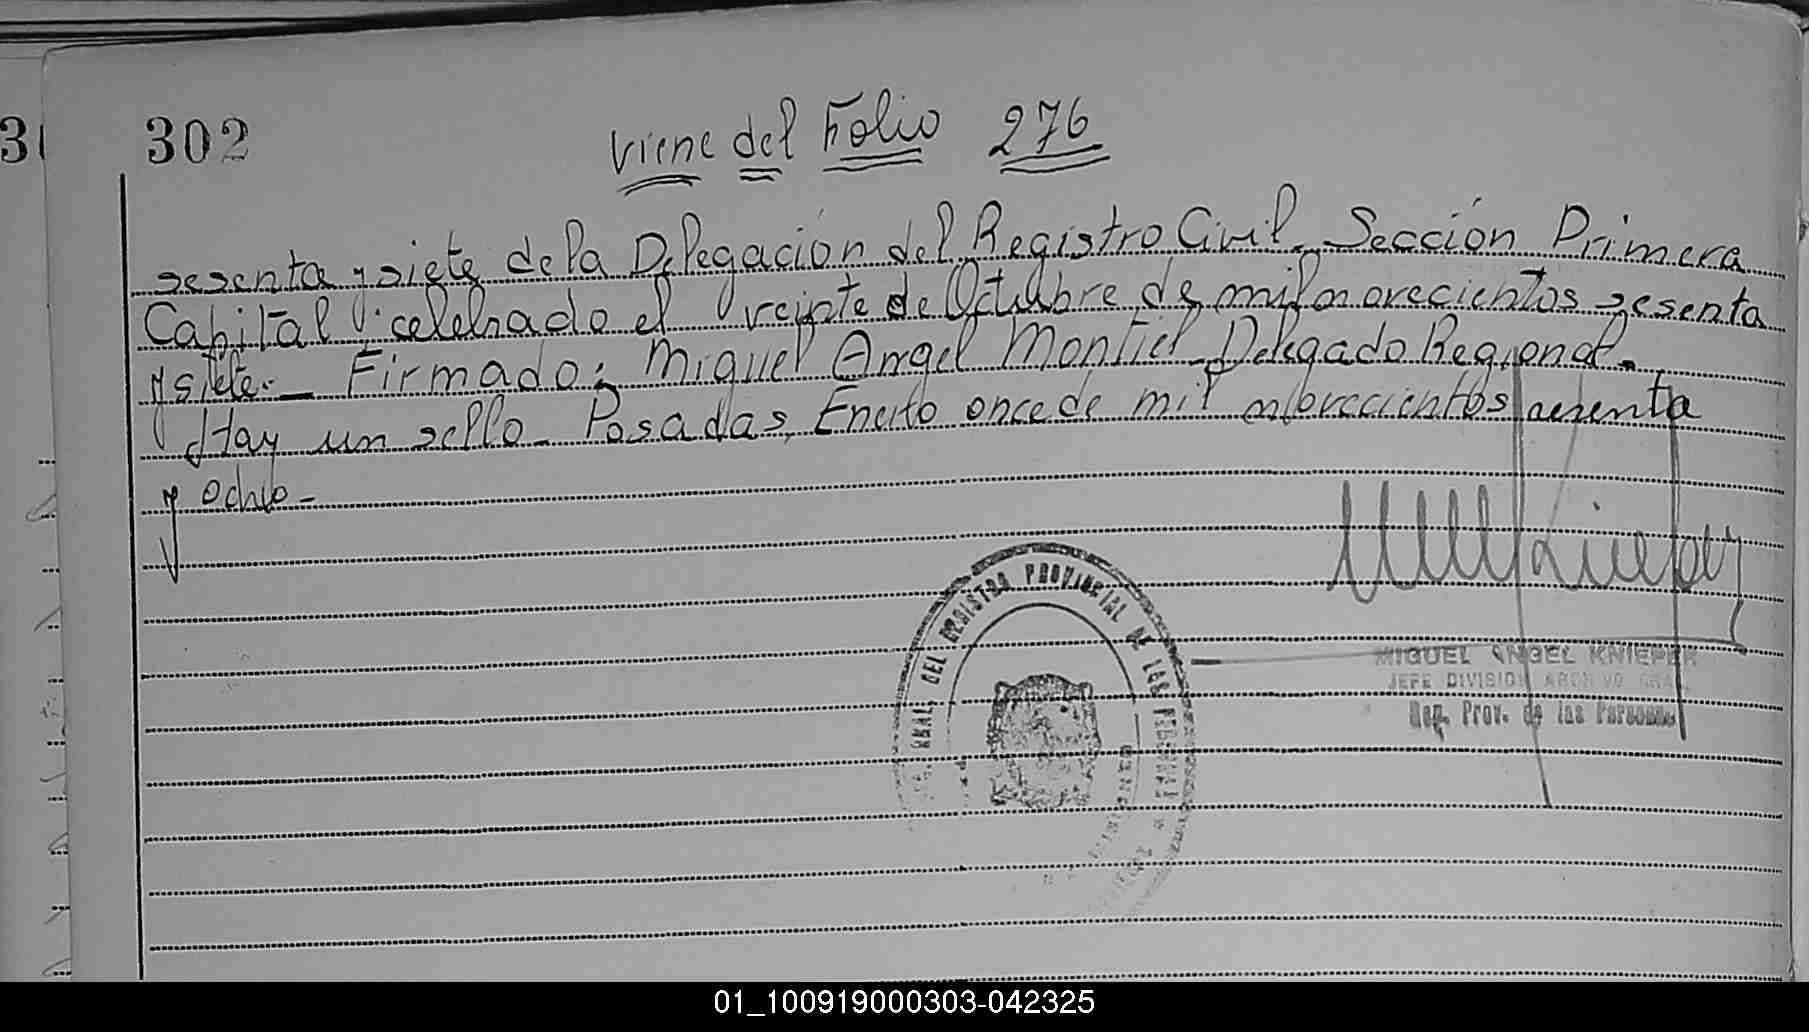 302
Viene del Folio 276
sesenta y siete de la Delegación del Registro Civil, Sección Primera
Capital, celebrado el veinte de Octubre de mil novecientos sesenta
y siete.- Firmado: Miguel Angel Montiel - Delegado Regional.
Hay un sello - Posadas, Enero once de mil novecientos sesenta
y ocho -
DEL REGISTRO PROVINCIAL DE LAS PERSONAS
MIGUEL ANGEL KNIEPER
JEFE DIVISION ARCHIVO GRAL.
Reg. Prov. de las Personas
01_100919000303-042325